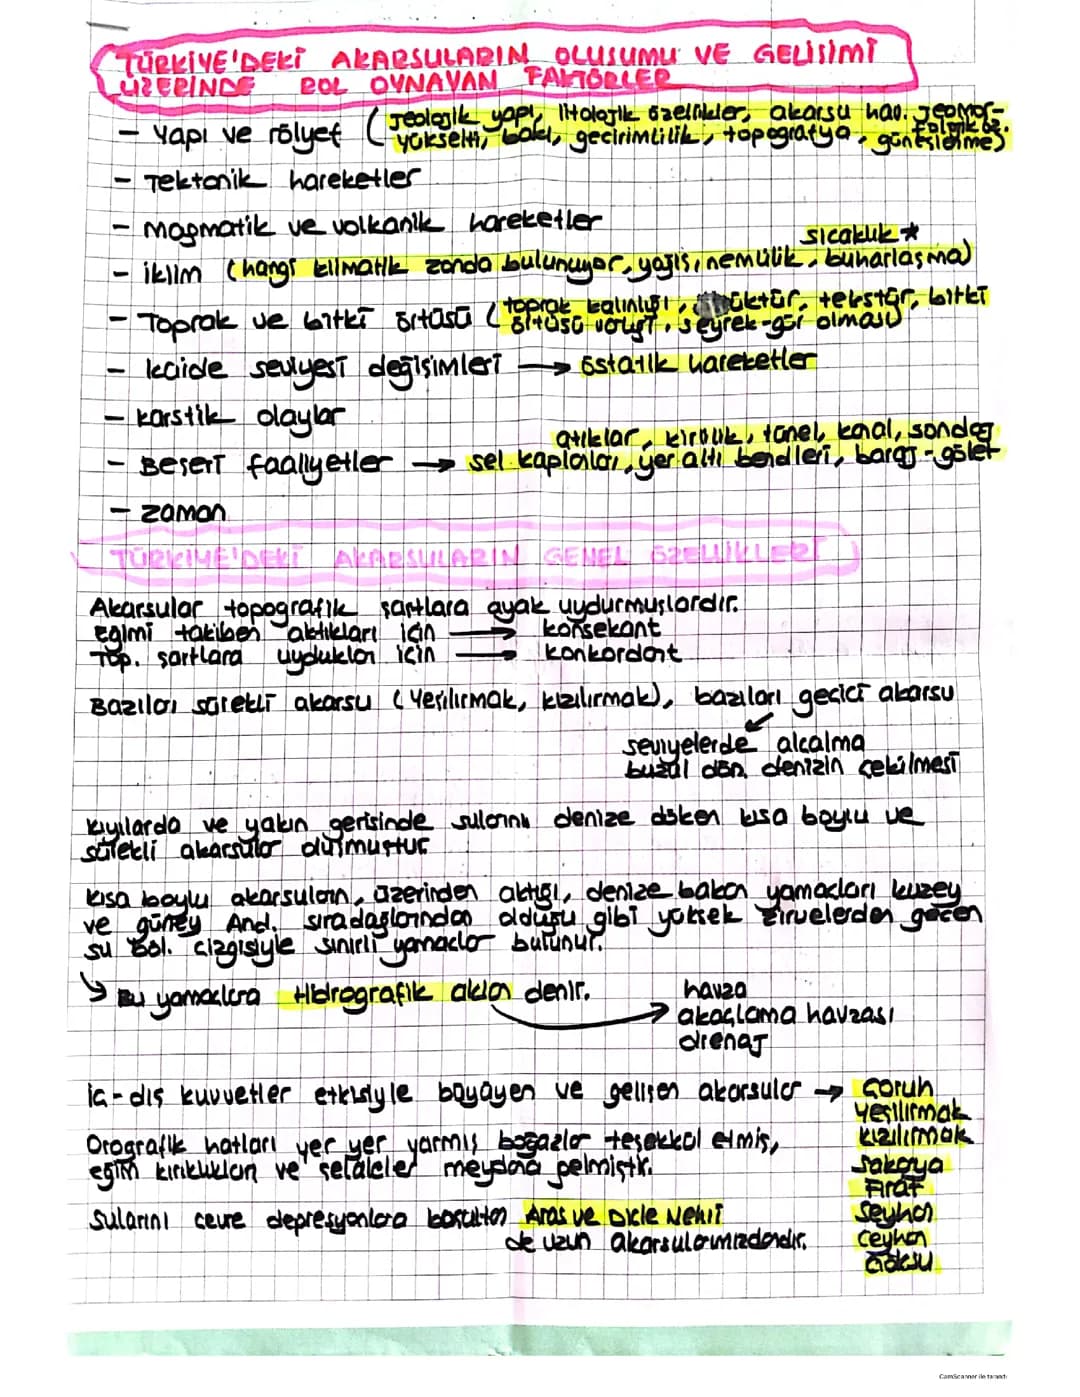 TÜRKİYE'DEKİ AKARSULARIN OLUSUMU VE GELİSİMİ
ÜZERİNDE ROL OYNAYAN FAKTÖRLER
- Yapı ve rölyef (Jeolojik yapı, litolojik özellikler, akarsu hav. jeomor-
folojik öz.
yükselti, bakı, gecirimlilik, topografya, güneslenme)
- Tektonik hareketler
- Magmatik ve volkanik hareketler
sıcaklık *
- iklim (hangi klimatik zonda bulunuyor, yağıs, nemlilik, buharlaşma)
- Toprak ve bitki örtüsü (toprak kalınlığı, tekstür, bitki
örtüsü seyrek-gür olması)
- kaide seviyesi değişimleri → östatik hareketler
- karstik olaylar
atıklar, kirlilik, tünel, kanal, sondaj
- Beşeri faaliyetler → sel kapanları, yer altı bendleri, baraj-gölet
- zaman
TÜRKİYE'DEKİ AKARSULARIN GENEL ÖZELLİKLERİ
Akarsular topografik şartlara ayak uydurmuşlardır.
Eğimi takiben aktıkları için → konsekant
Top. şartlara uydukları için → konkordant
Bazıları sürekli akarsu (Yeşilırmak, Kızılırmak), bazıları geçici akarsu
seviyelerde alcalma
buzul dön. denizin çekilmesi
kıyılarda ve yakın gerisinde sularını denize döken kısa boylu ve
sürekli akarsular oluşmuştur
kısa boylu akarsuların, üzerinden aktığı, denize bakan yamacları kuzey
ve güney And. sıradaglarından olduğu gibi yüksek zirvelerden gecen
su böl. cizgisiyle sınırlı yamaclar bulunur.
↳ Bu yamaclara Hidrografik aklan denir.
havza
→ akaçlama havzası
drenaj
ic-dış kuvvetler etkisiyle büyüyen ve gelişen akarsular → Çoruh
Yeşilırmak
Kızılırmak
Sakarya
Fırat
Seyhan
Ceyhan
Göksu
Orografik hatları yer yer yarmış boğazlar teşekkül etmiş,
eğim kırıklıkları ve selaleler meydana gelmiştir.
Sularını cevre depresyonlara boşaltan Aras ve Dicle Nehri
de uzun akarsularımızdandır.
CamScanner ile tarandı